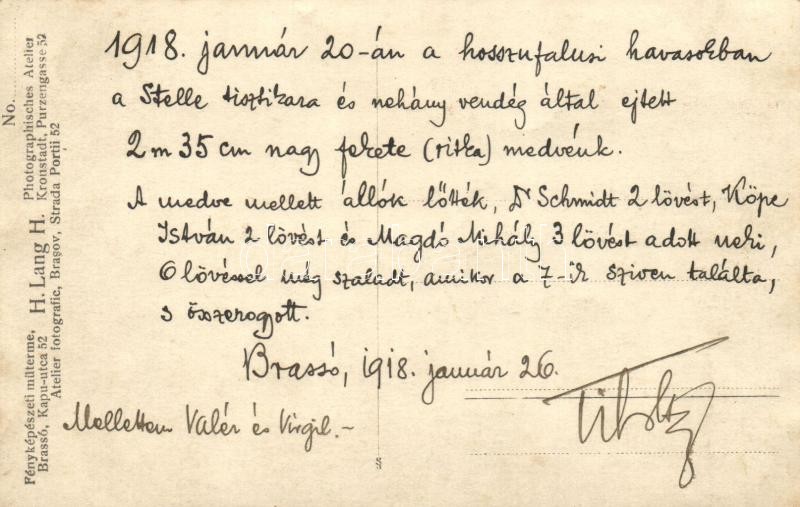 1918. január 20-án a hosszufalusi havasokban
a Stelle tisztikara és nehány vendég által ejtett
2 m 35 cm nagy fekete (ritka) medvénk.
A medve mellett állók lőtték, Dr Schmidt 2 lövést, Köpe
István 2 lövést és Magdó Mihály 3 lövést adott neki,
6 lövéssel még szaladt, amikor a 7-ik sziven találta,
s összerogyott.
Brassó, 1918. január 26.
Mellettem Valér és Virgil.-
No.
Fényképészeti műterme, H. Lang H. Photographisches Atelier
Brassó, Kapu-utca 52 Kronstadt, Purzengasse 52
Atelier fotografic, Brașov, Strada Portii 52